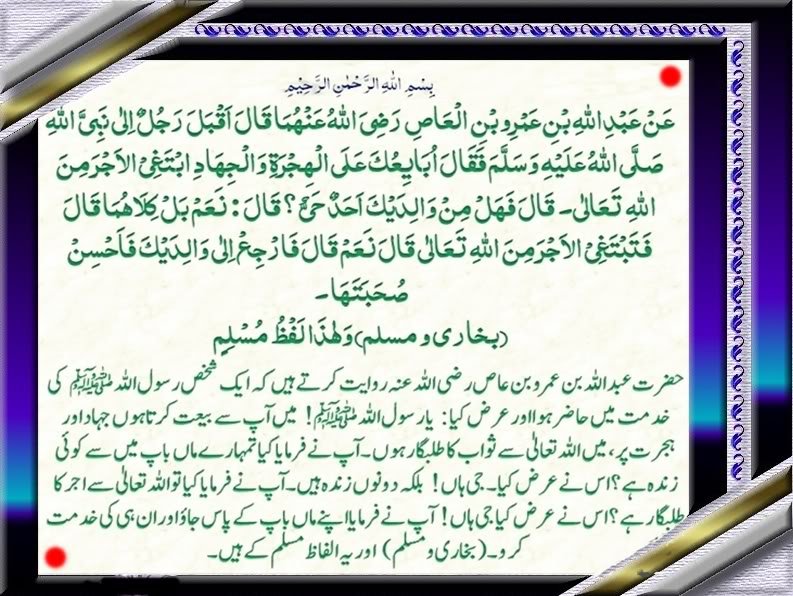 بِسْمِ اللهِ الرَّحْمٰنِ الرَّحِيْمِ
عَنْ عَبْدِ اللهِ بْنِ عَمْرِو بْنِ الْعَاصِ رَضِیَ اللهُ عَنْهُمَا قَالَ اَقْبَلَ رَجُلٌ اِلٰی نَبِیَّ اللهِ
صَلَّی اللهُ عَلَيْهِ وَسَلَّمَ فَقَالَ اُبَايِعُكَ عَلَی الْهِجْرَةِ وَالْجِهَادِ ابْتَغِیْ الاَجْرَ مِنَ
اللهِ تَعَالٰی۔ قَالَ فَهَلْ مِنْ وَالِدَيْكَ اَحَدٌ حَیٌّ؟ قَالَ: نَعَمْ بَلْ كِلَاهُمَا قَالَ
فَتَبْتَغِیْ الاَجْرَ مِنَ اللهِ تَعَالٰی قَالَ نَعَمْ قَالَ فَارْجِعْ اِلٰی وَالِدَيْكَ فَاَحْسِنْ
صُحَبَتَهَا۔
(بخاری و مسلم) وَهٰذَا لَفْظُ مُسْلِمٍ
حضرت عبد اللہ بن عمرو بن عاص رضی اللہ عنہ روایت کرتے ہیں کہ ایک شخص رسول اللہ ﷺ کی
خدمت میں حاضر ہوا اور عرض کیا: یا رسول اللہ ﷺ! میں آپ سے بیعت کرتا ہوں جہاد اور
ہجرت پر، میں اللہ تعالیٰ سے ثواب کا طلبگار ہوں۔ آپ نے فرمایا کیا تمہارے ماں باپ میں سے کوئی
زندہ ہے؟ اس نے عرض کیا۔ جی ہاں! بلکہ دونوں زندہ ہیں۔ آپ نے فرمایا کیا تو اللہ تعالیٰ سے اجر کا
طلبگار ہے؟ اس نے عرض کیا جی ہاں! آپ نے فرمایا اپنے ماں باپ کے پاس جاؤ اور ان ہی کی خدمت
کرو۔ (بخاری و مسلم) اور یہ الفاظ مسلم کے ہیں۔